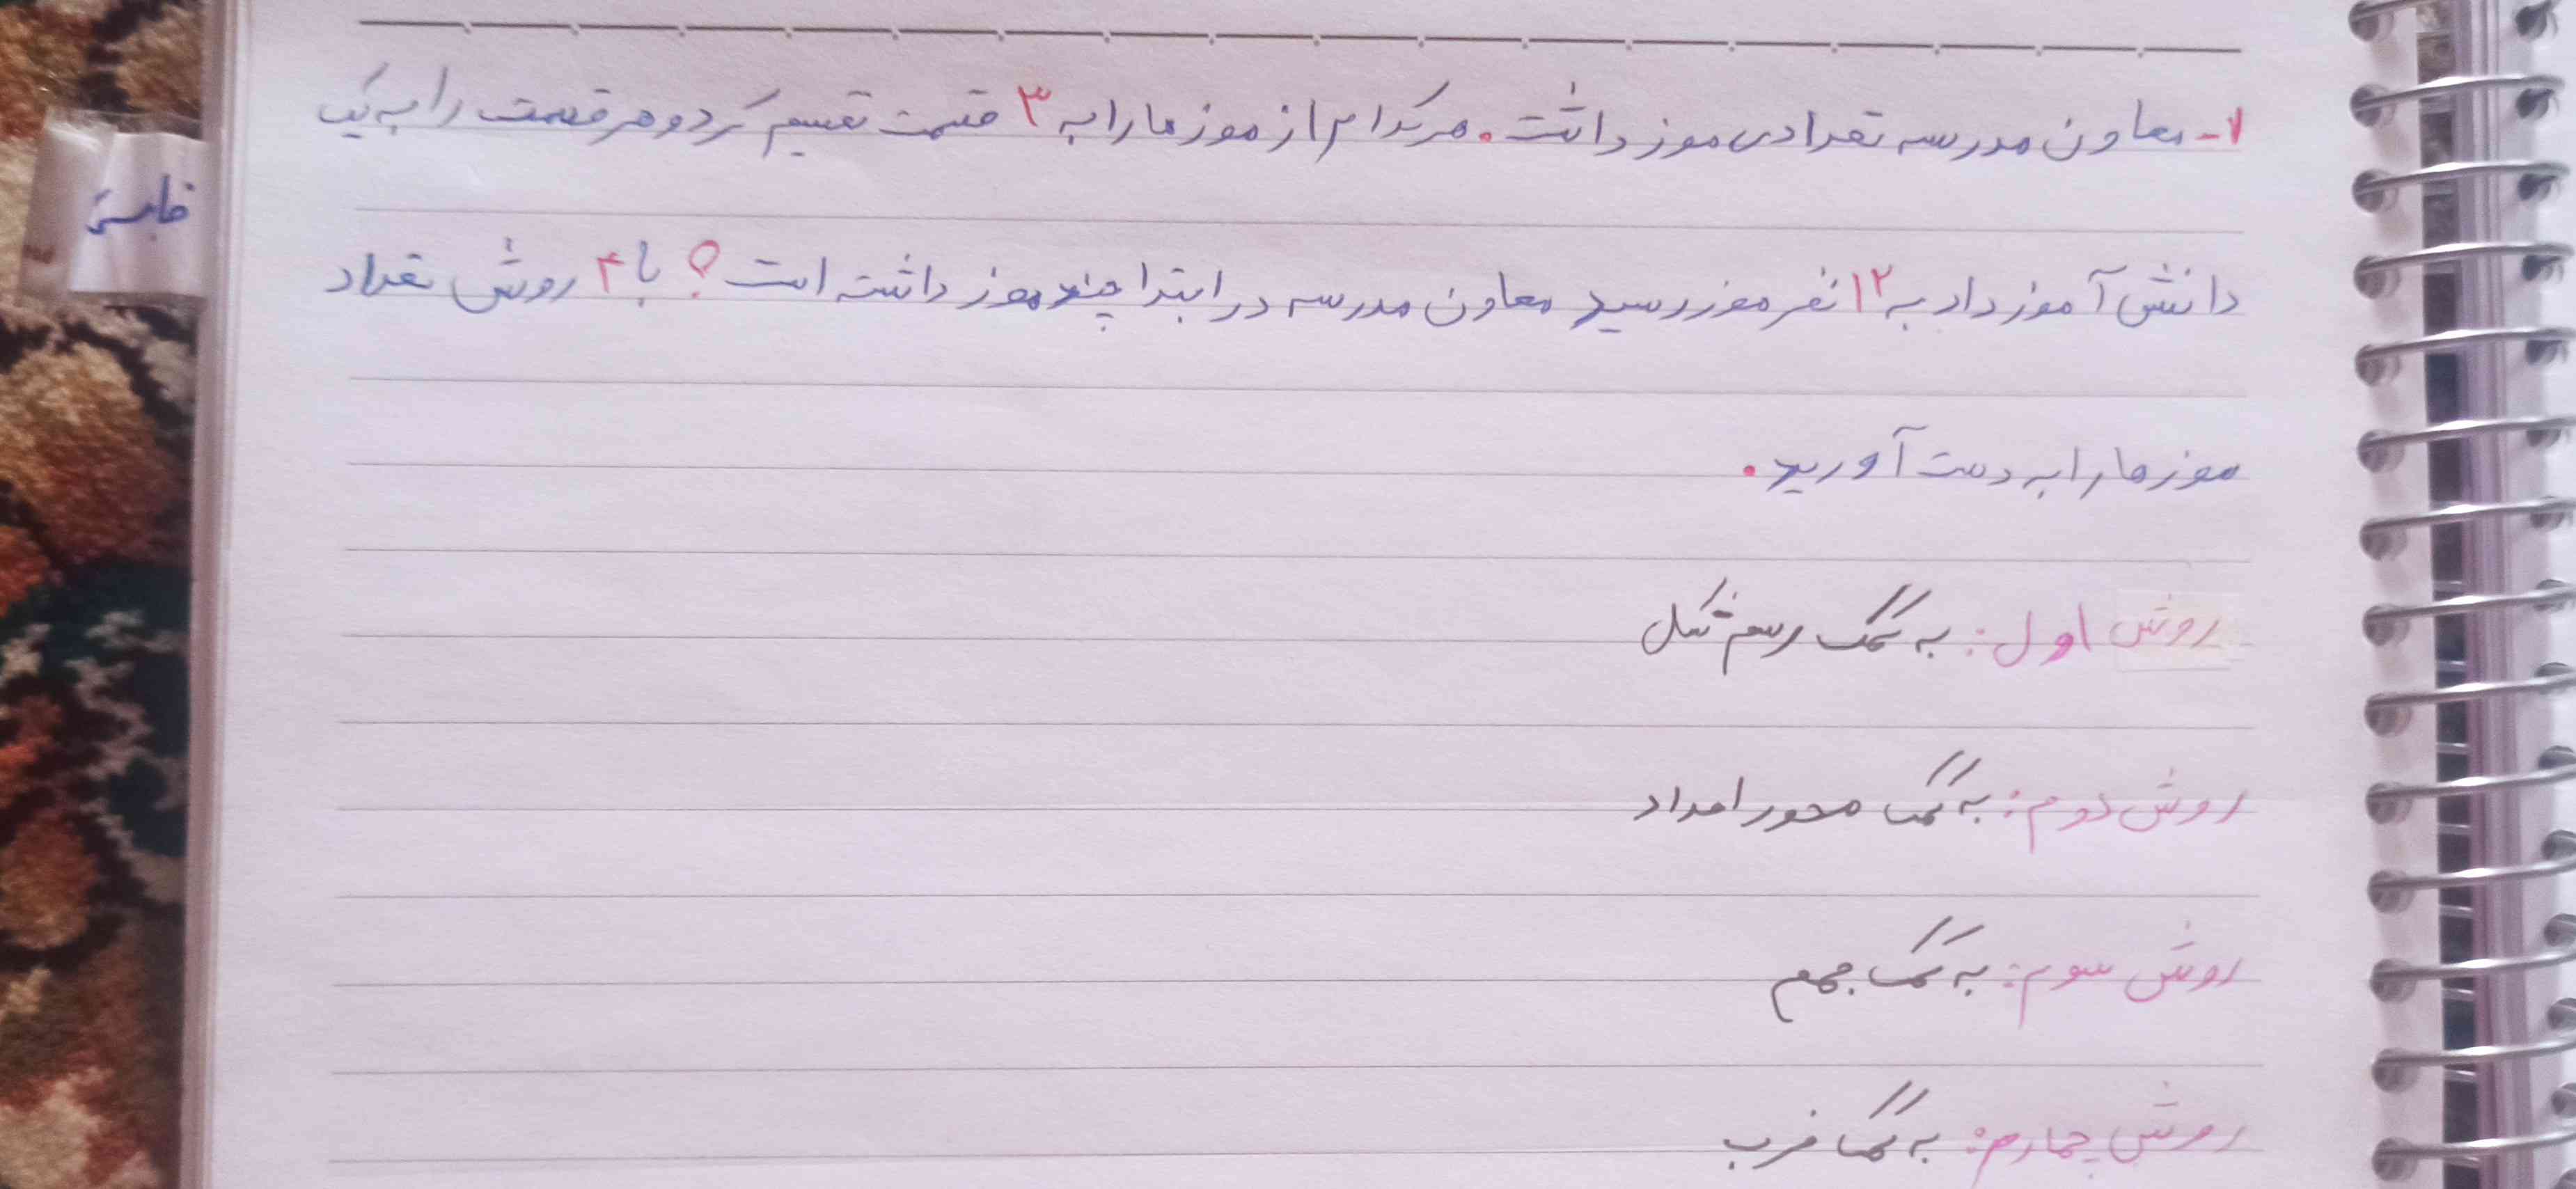 ۱- معاون مدرسه تعدادی موز داشت. هرکدام از موزها را به ۳ قسمت تقسیم کرد و هر قسمت را به یک
دانش آموز داد به ۱۲ نفر موز رسید معاون مدرسه در ابتدا چند موز داشته است؟ با ۴ روش تعداد
موزها را به دست آورید.
روش اول: به کمک رسم شکل
روش دوم: به کمک محور اعداد
روش سوم: به کمک جمع
روش چهارم: به کمک ضرب